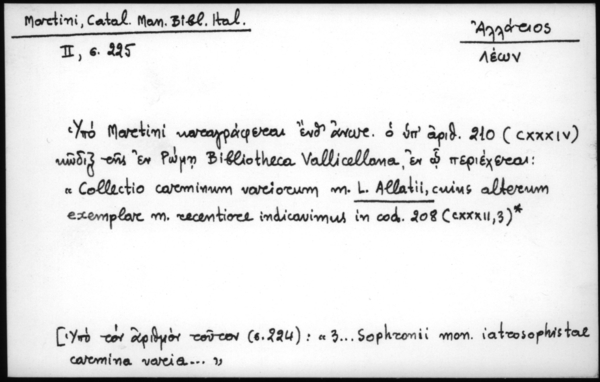 Martini, Catal. Man. Bibl. Ital.
II, σ. 225
Ἀλλάτιος
Λέων
Ὑπὸ Martini καταγράφεται ἔνθ' ἄνωτ. ὁ ὑπ' ἀριθ. 210 (CXXXIV)
κῶδιξ τῆς ἐν Ρώμῃ Bibliotheca Vallicellana, ἐν ᾧ περιέχεται:
« Collectio carminum variorum m. L. Allatii, cuius alterum
exemplar m. recentiore indicavimus in cod. 208 (CXXXII,3)*
[Ὑπὸ τὸν ἀριθμὸν τοῦτον (σ.224): « 3... Sophronii mon. iatrosophistae
carmina varia... »